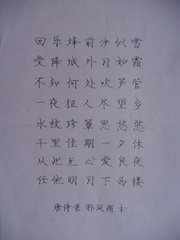 回乐烽前沙似雪
受降城外月如霜
不知何处吹芦管
一夜征人尽望乡
水纹珍簟思悠悠
千里佳期一夕休
从此无心爱良夜
任他明月下西楼
唐诗 书